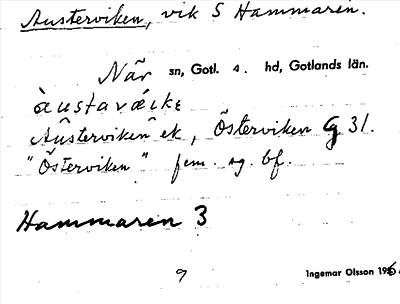 Austerviken, vik S Hammaren.
När sn, Gotl. s. hd, Gotlands län.
àustavǽike
Austerviken ek, Österviken G 31.
"Österviken" fem. sg. bf.
Hammaren 3
9
Ingemar Olsson 195